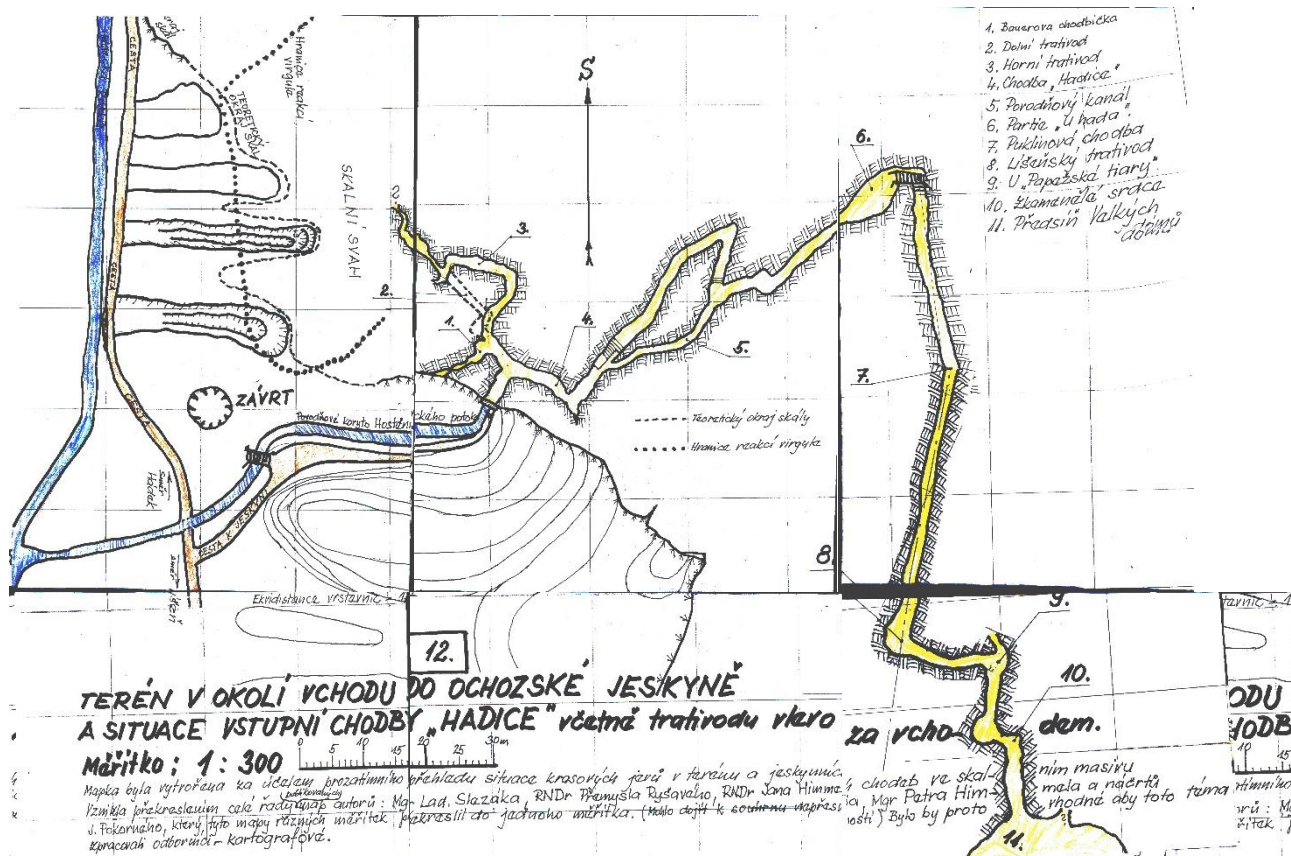 1. Bauerova chodbička
2. Dolní trativod
3. Horní trativod
4. Chodba „Hadice"
5. Porodňový kanál
6. Partie „U hada"
7. Puklinová chodba
8. Líšeňský trativod
9. U „Papežská tiary"
10. Zkamenělá srdce
11. Předsíň Velkých dómů
S
CESTA
Hranice reakcí virgule
TEORETICKÝ OKRAJ SKÁLY
SKALNÍ SVAH
CESTA
CESTA
CESTA
2
3.
6.
2.
1.
4.
5.
7.
ZÁVRT
Povodňové koryto Hostěnického potoka
Teoretický okraj skály
Hranice reakcí virgule
směr Hádek
CESTA K JESKYNI
směr Líšeň
8.
Ekvidistance vrstevnic = 1
9.
12.
10.
TERÉN V OKOLÍ VCHODU DO OCHOZSKÉ JESKYNĚ
ODU
A SITUACE VSTUPNÍ CHODBY „HADICE" včetně trativodu vlevo za vchodem.
HODB
Měřítko: 1 : 300
0 5 10 15 20 25 30m
10 15
Mapka byla vytvořena za účelem prozatímního přehledu situace krasových jevů v terénu a jeskynních chodeb ve skalním masivu
Vznikla překreslením celé řady publikovaných map autorů: Mgr Lad. Slezáka, RNDr Přemysla Ryšavého, RNDr Jana Himmela, Mgr Petra Himmela a náčrtů
J. Pokorného, který tyto mapy různých měřítek překreslil do jednoho měřítka. (Mohlo dojít k souhrnu nepřesností) Bylo by proto vhodné aby toto téma
zpracovali odborníci - kartografové.
11.